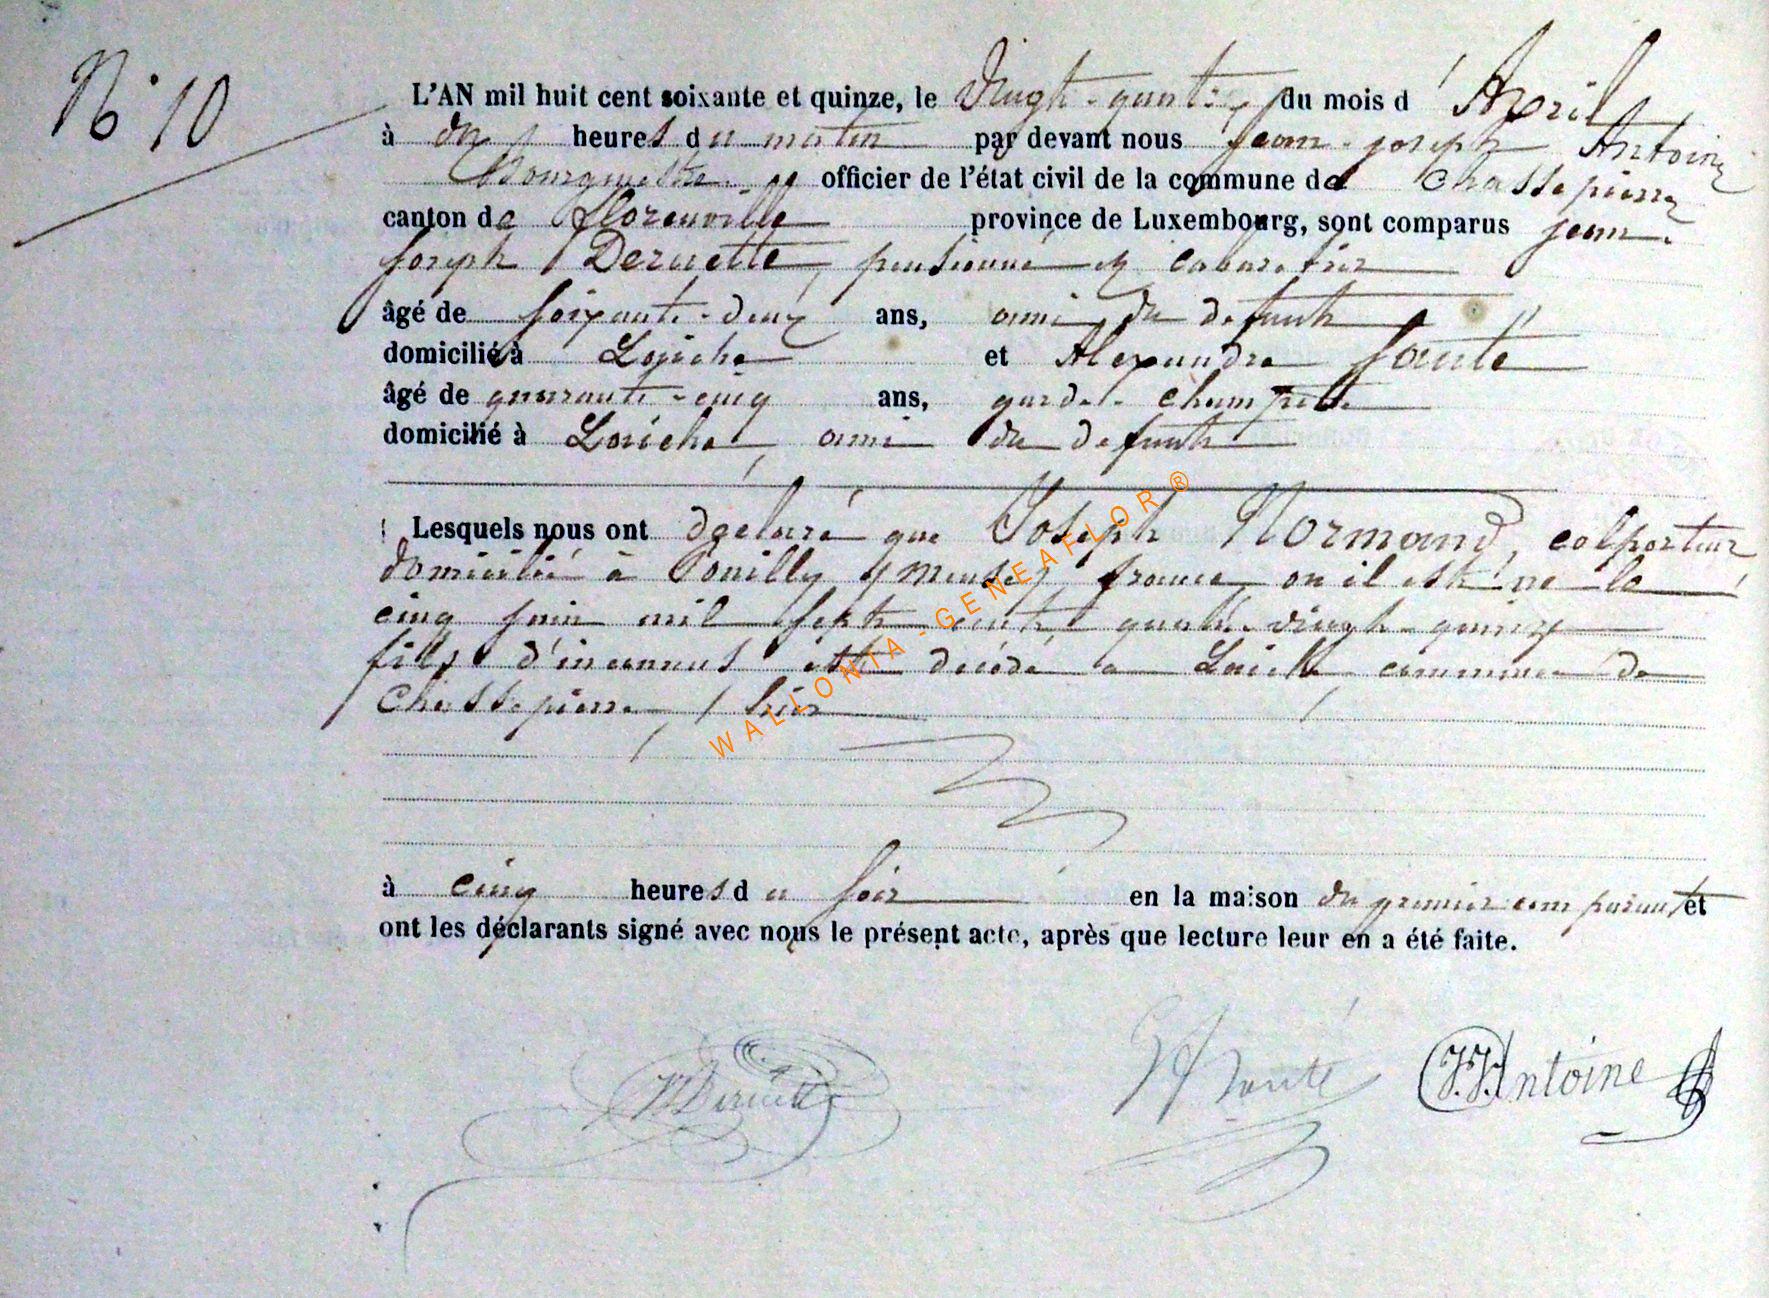 N° 10
L'AN mil huit cent soixante et quinze, le Vingt-quatre, du mois d'Avril
à dix heures du matin par devant nous Jean-joseph Antoine
Bourgmestre officier de l'état civil de la commune de Chassepierre
canton de Florenville province de Luxembourg, sont comparus jean-
joseph Deruette, pensionné et cabaretier
âgé de soixante-deux ans, ami du defunt
domicilié à Laiche et Alexandre Santé
âgé de quarante-cinq ans, garde-champêtre
domicilié à Laiche, ami du defunt
Lesquels nous ont declaré que Joseph Normand, colporteur
domicilié à Pouilly (meuse) france, ou il est né le
cinq juin mil sept cent quatre-vingt-quinze
fils d'inconnus est décédé a Laiche, commune de
Chassepierre, hier
à cinq heures du soir en la maison du premier comparant et
ont les déclarants signé avec nous le présent acte, après que lecture leur en a été faite.
Deruette Santé J.J. Antoine
WALLONIA-GENEAFLOR®